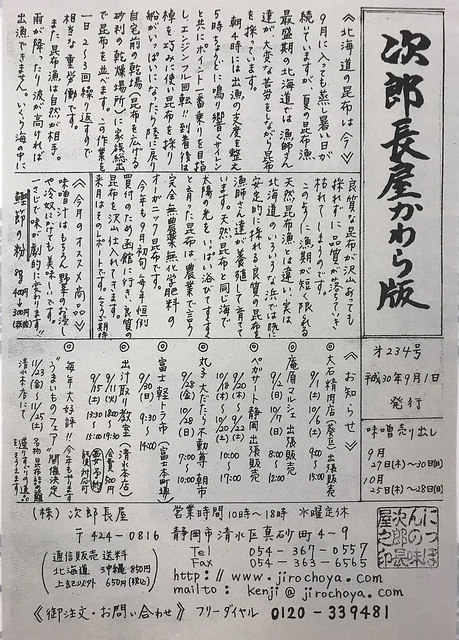 次郎長屋かわら版
オ234号
平成30年9月1日
発行
味噌売り出し
9月
27日(木)〜30日(日)
10月
25日(木)〜28日(日)
《北海道の昆布は今》
9月に入っても蒸し暑い日が
続いていますが、夏の昆布漁
最盛期の北海道では漁師さん
達が大変な苦労をしながら昆布
を採っています。
朝4時には出漁の支度を整え
5時などに鳴り響くサイレン
と共にポイント一番乗りを目指
しエンジン全回転!!到着後は
棹を巧みに使い昆布を採り
船がいっぱいになったら陸に戻り
自宅前の乾場(昆布を広げる
砂利の乾燥場所)に家族総出
で昆布を並べます。この作業を
一日2〜3回繰り返すので
相当な重労働です。
また昆布漁は自然が相手。
雨が降ったり波が高ければ
出漁できません。いくら海の中に
良質な昆布が沢山あっても
採れずに品質が落ちていき
枯れてしまうのです。
このように漁期が短く限られる
天然昆布漁とは違い、実は
北海道のいろいろな浜では既に
安定的に採れる良質の昆布を
漁師さん達が養殖して育てて
います。天然昆布と同じ海で
太陽の光をいっぱい浴びてすくすく
と育った昆布は農業で言う
完全無農薬無化学肥料の
オーガニック昆布です。
今年も9月初旬、毎年恒例
買付のため函館に行き、良質の
昆布を沢山仕入れてきます。
来月はそのレポートです。乞うご期待
《今月のオススメ商品》
味噌汁はもちろん野菜のお浸し
や冷奴にかけても美味しいです。
一さじで味が劇的に変わります!!
鰹節の粉 80g 400円→300円(税抜)
《お知らせ》
◎大石精肉店(葵区)出張販売
9/1(土) 10/6(土) 9:00〜15:00
◎庵原マルシェ出張販売
9/2(日) 10/7(日) 8:00〜12:00
◎ペガサート静岡出張販売
9/18(火)〜9/20(木)
10/20(土)〜10/22(月)
◎丸子大だたら不動尊朝市
9/28(金) 10/28(日)
◎富士軽トラ市(富士本町通り)
9/30(日) 9:30〜14:00
◎出汁取り教室(清水本店)
9/11(火) 18:00〜19:30 会費500円
9/15(土) 13:30〜15:00 要予約
◎毎年大好評!!今年もやります
"うまいものフェア"開催決定
11/23(金)〜11/25(土)
清水本店にて
(株)次郎長屋 営業時間10時〜18時 水曜定休
〒424-0816 静岡市清水区真砂町4-9
通信販売送料
北海道 沖縄850円
上記以外650円(税込)
Tel 054-367-0557
Fax 054-363-6565
http://www.jirochoya.com
mailto: kenji@jirochoya.com
にっぽんの味
次郎長屋之印
《御注文・お問い合わせ》 フリーダイヤル 0120-339481